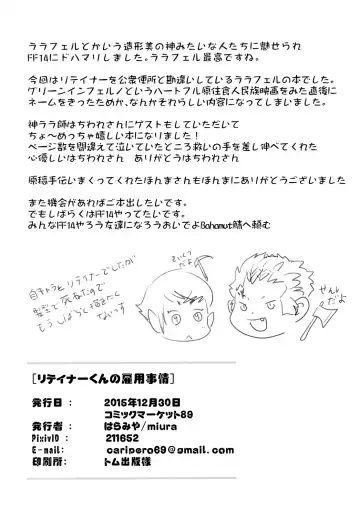 ララフェルとかいう造形美の神みたいな人たちに魅せられ
FF14にドハマりしました。ララフェル最高ですね。
今回はリテイナーを公衆便所と勘違いしているララフェルの本でした。
グリーンインフェルノというハートフル原住食人民族映画をみた直後に
ネームをきったためか、なんかそれらしい内容になってしまいました。
神ララ師はちわれさんにゲストもしていただいて
ちょ〜めっちゃ嬉しい本になりました!
ページ数を間違えて泣いていたところ救いの手を差し伸べてくれた
心優しいはちわれさん ありがとうはちわれさん
原稿手伝いまくってくれたほんまさんもほんまにありがとうございました
また機会があればご本出したいです。
でもしばらくはFF14やってたいです。
みんなFF14やろう友達になろうおいでよBahamut鯖へ頼む
さいしょう
だよ
せんし
だよ
自キャラとリテイナーでしたが
髪型で死ねたので
もうしばらく描きたく
ないっす
[リテイナーくんの雇用事情]
発行日: 2015年12月30日
コミックマーケット89
発行者: はらみや/miura
PixivID: 211652
E-mail: caripero69@gmail.com
印刷所: トム出版様